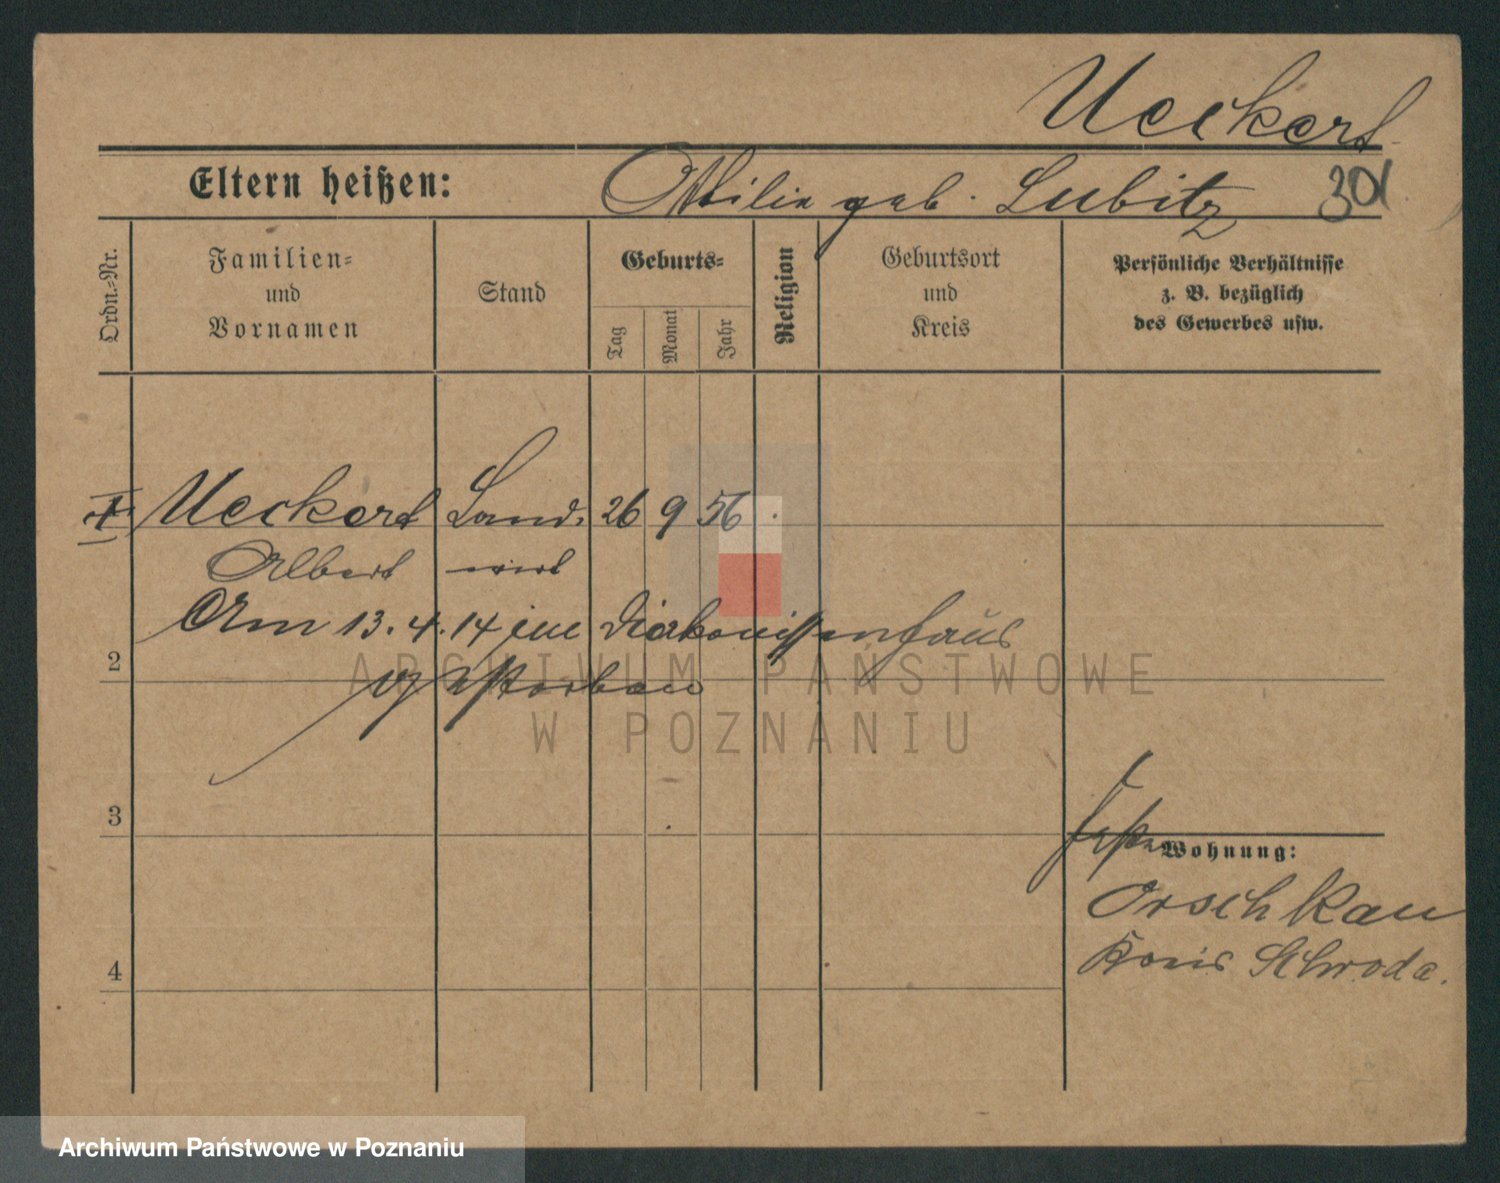 Ueckert
Eltern heißen: Ottilie geb. Lubitz 301
Ordn.-Nr.
Familien-
und
Vornamen
Stand
Geburts-
Tag
Monat
Jahr
Religion
Geburtsort
und
Kreis
Persönliche Verhältnisse
z. B. bezüglich
des Gewerbes usw.
I Ueckert Land- 26 9 56
Albert wirt
Am 13.4.14 im Diakonissenhaus
2
verstorben
ARCHIWUM PAŃSTWOWE
W POZNANIU
3
Wohnung:
Orschkau
4
Kreis Schroda.
Archiwum Państwowe w Poznaniu